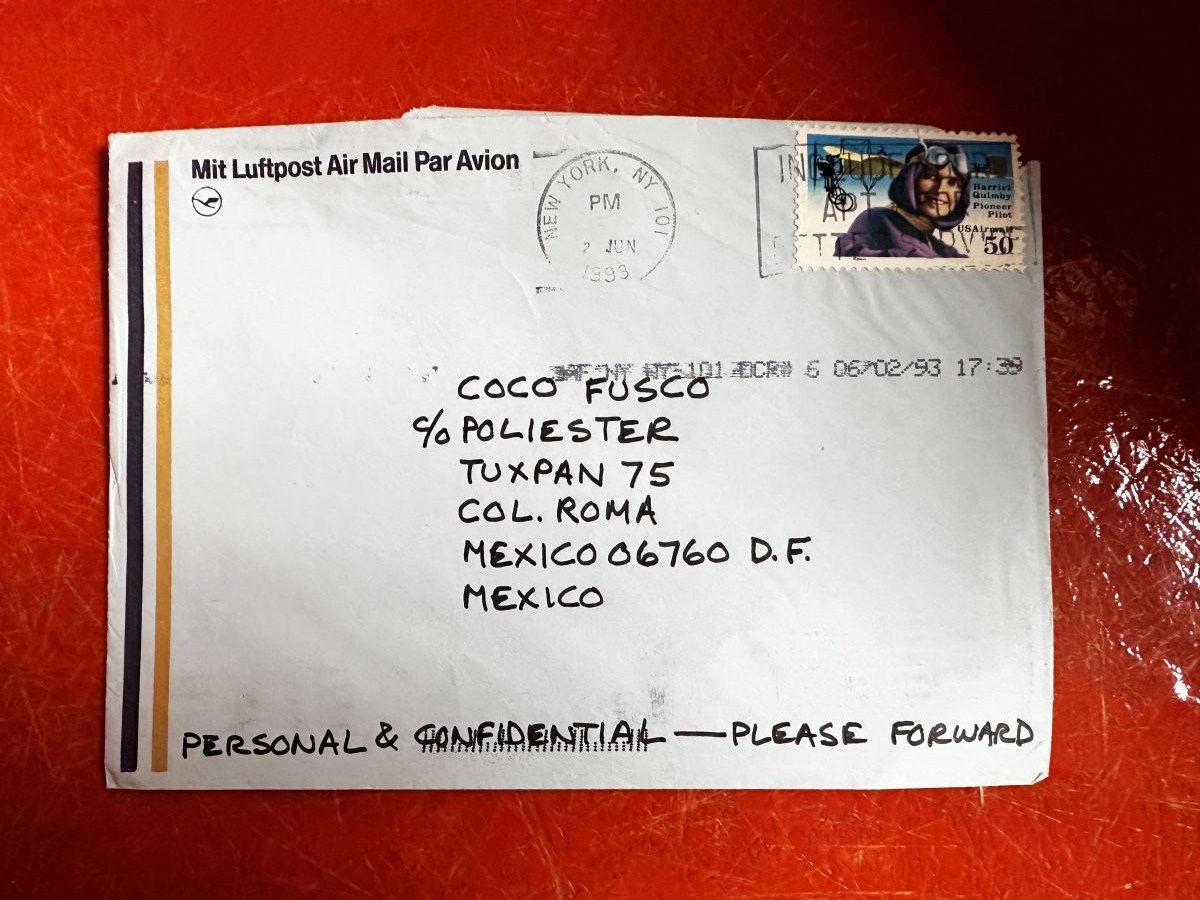 Mit Luftpost Air Mail Par Avion
NEW YORK, NY 101
PM
2 JUN
1993
Harriet
Quimby
Pioneer
Pilot
USAirmail
50
APT
NY 101 6 06/02/93 17:39
COCO FUSCO
c/o POLIESTER
TUXPAN 75
COL. ROMA
MEXICO 06760 D.F.
MEXICO
PERSONAL & CONFIDENTIAL — PLEASE FORWARD